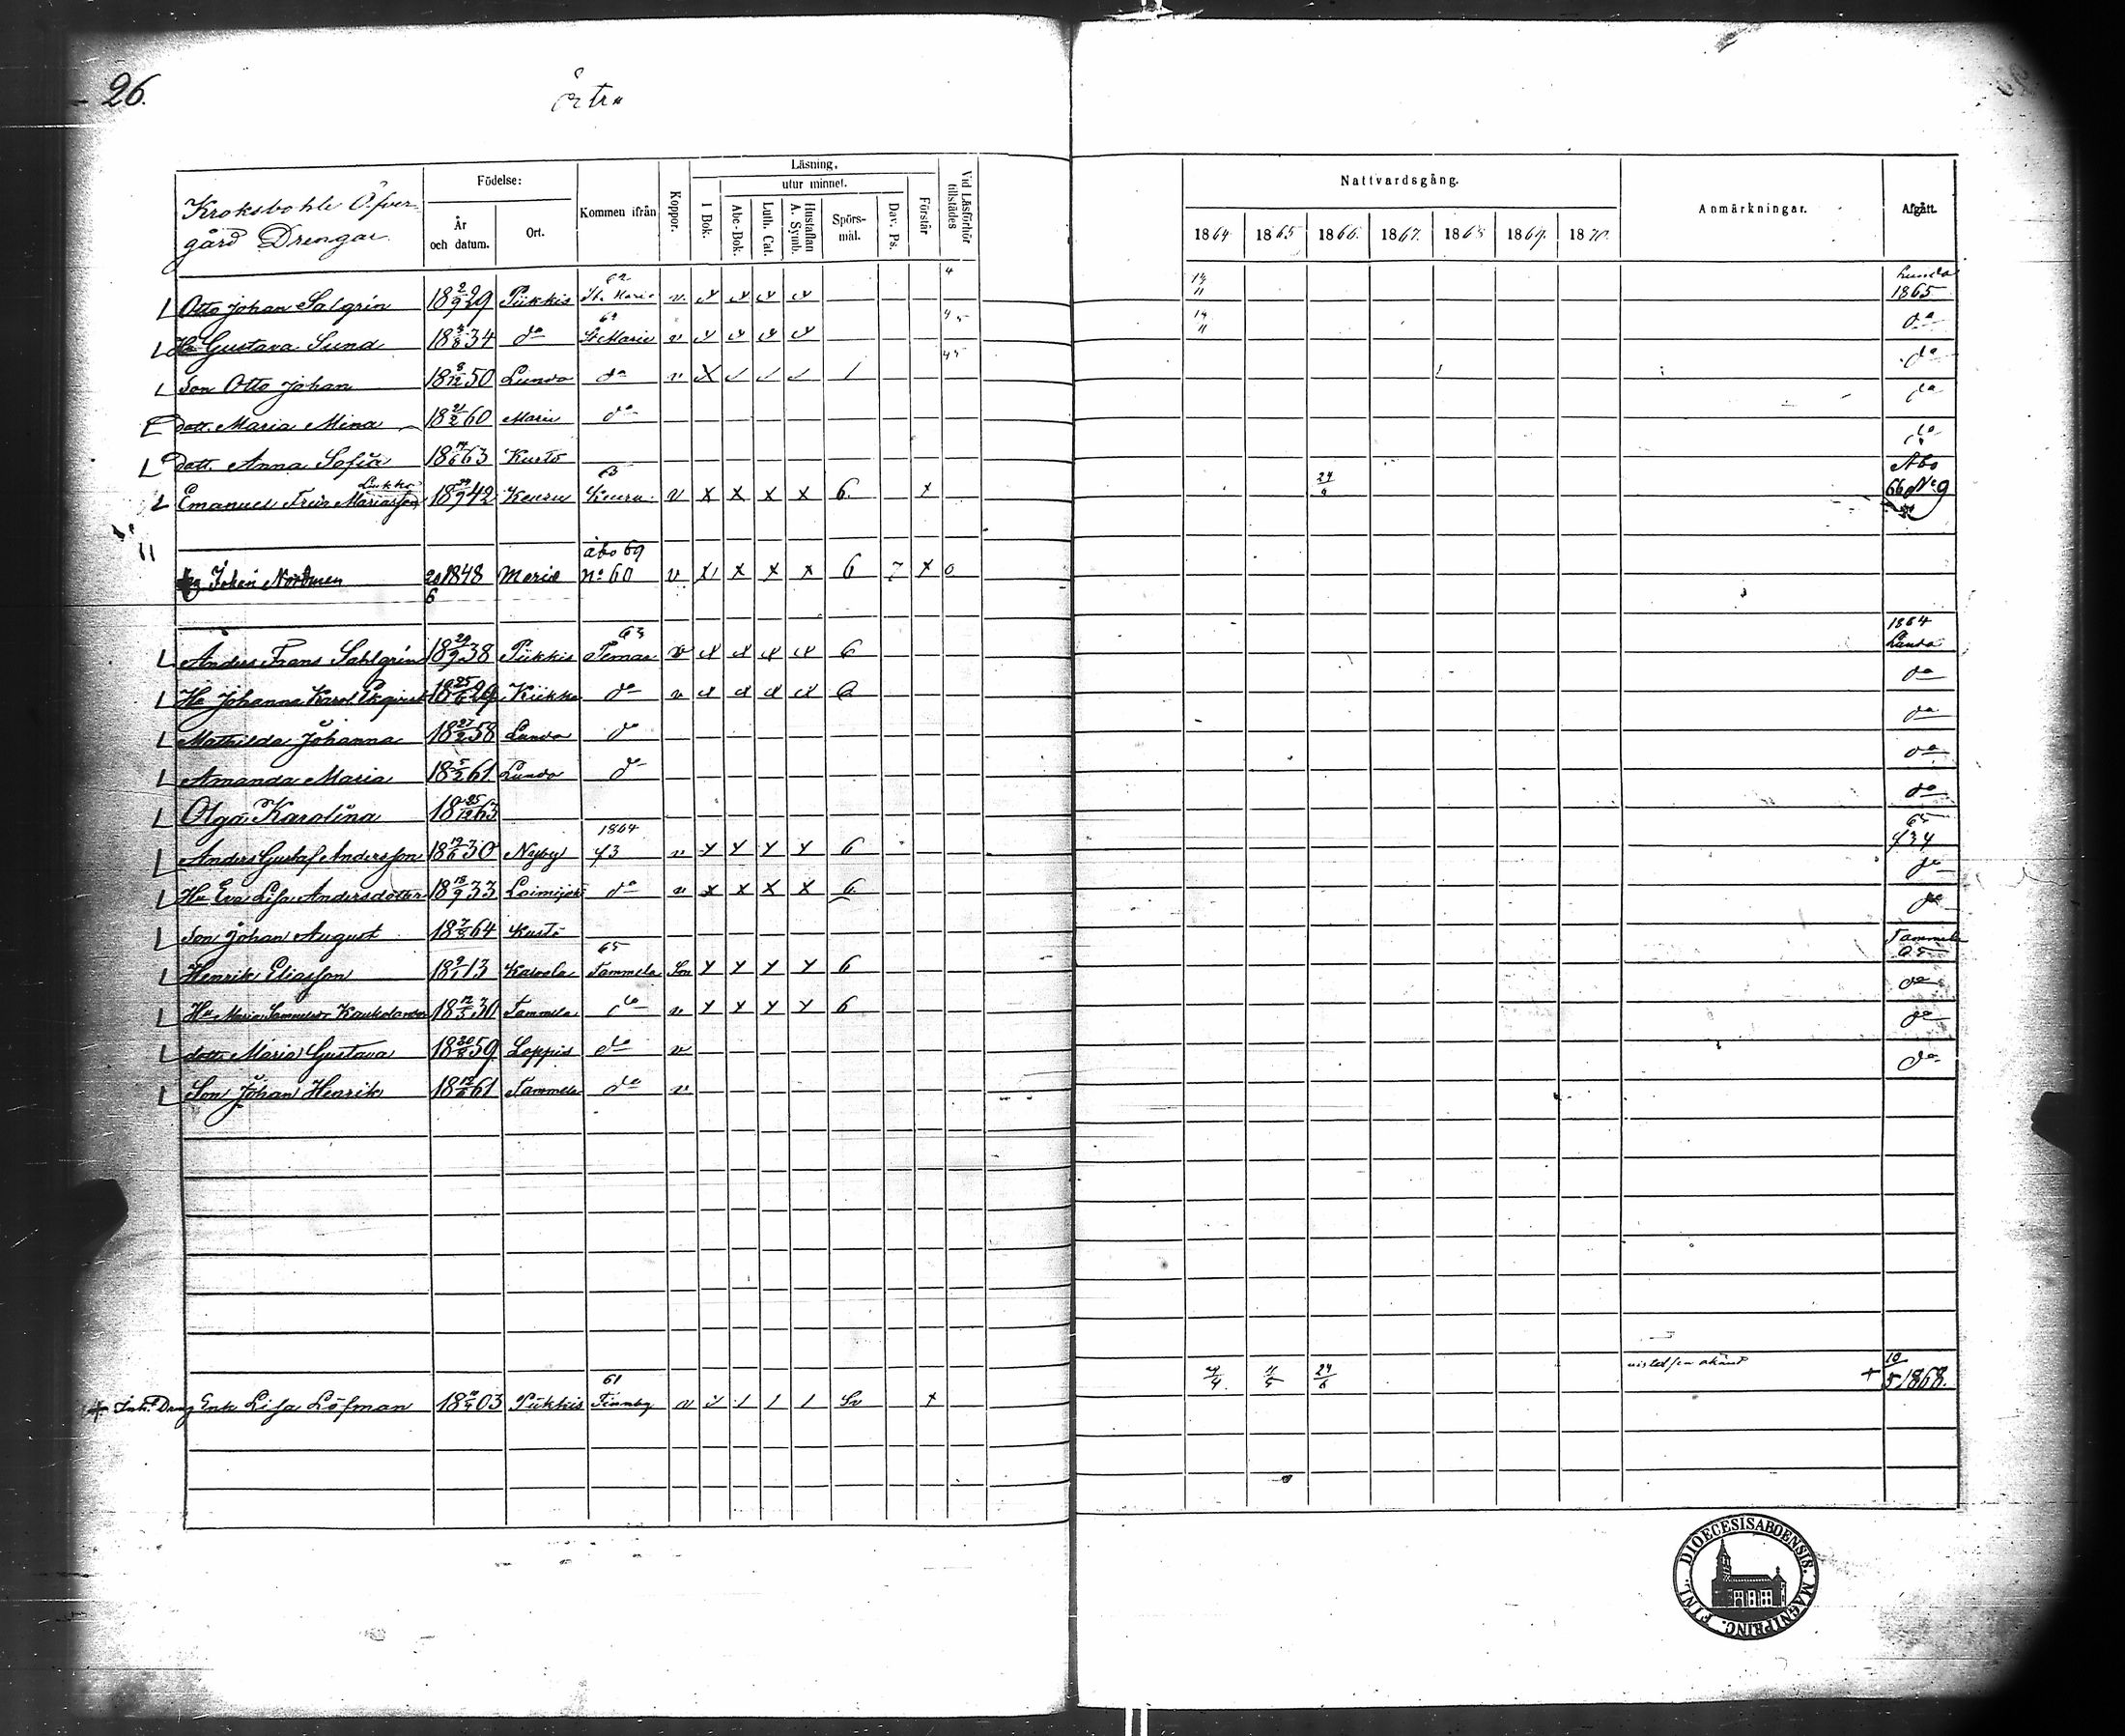 26.
Kroksbohle Öfver-
gård Drengar.
Födelse:
År och datum.
Ort.
Kommen ifrån
Koppor.
Läsning.
utur minnet.
I Bok.
Abc-Bok.
Luth. Cat.
Hustaflan A. Symb.
Spörs-mål.
Dav. Ps.
Förstår
Vid Läsförhör tillstädes
Nattvardsgång.
1864 1865 1866. 1867. 1868 1869. 1870.
Anmärkningar.
Afgått.
Otto Johan Salgrin 18 2/9 29 Piikkis 62 St. Marie v. 4 Lundo 1865
Hu Gustava Sund 18 34 do St Marie v 45 do
Son Otto Johan 18 50 Lundo do v 45 do
dott. Maria Mina 18 21/2 60 Marie do do
dott. Anna Sofia 18 63 Kustö do
Emanuel Frür Mariasson 18 42 Keuru 63 Keuru v x x x x 6. x 24/6 Åbo 66 No 9
Johan Nordmen 20/6 1848 Marie åbo 69 no 60 v x x x x 6 7 x 0
Anders Frans Sahlgrén 18 29/9 38 Piikkis 63 Pemar v 6 1864 Lundo
Hu Johanna Karol. Ekqvist 18 25/6 29 Kiikka do v 6 do
Mathilda Johanna 18 27/2 58 Lundo do do
Amanda Maria 18 5/2 61 Lundo do do
Olga Karolina 18 25/12 63 do
Anders Gustaf Andersson 18 30 Nagby 1864 43 v 6 65 434
Hu Eva Lisa Andersdotter 18 18/9 33 Loimijoki do v x x x x 6 do
Son Johan August 18 7/8 64 Kustö do
Henrik Eliasson 18 9/1 13 Karvola 65 Tammela 6 Tammela 65
Hu Maria 18 12/5 30 Tammela do v 6 do
dott. Maria Gustava 18 20/8 59 Loppis do v do
Son Johan Henrik 18 61 Tammela do v do
+ Inh. Dreng Enk. Lisa Löfman 18 03 Piikkis 61 Finnby v Sv + 11/5 24/6 + 10/5 1868.
FINL. DIOECESIS ABOENSIS. MAGNI PRINC.